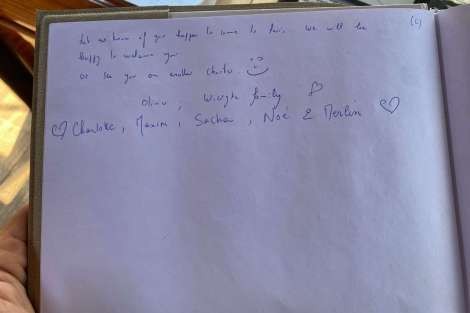 (c)
Let us know if you happen to come to Paris. We will be
Happy to welcome you
Or see you on another charter.
Olivier, family
Charlotte, Maxim, Sacha, Noé & Merlin